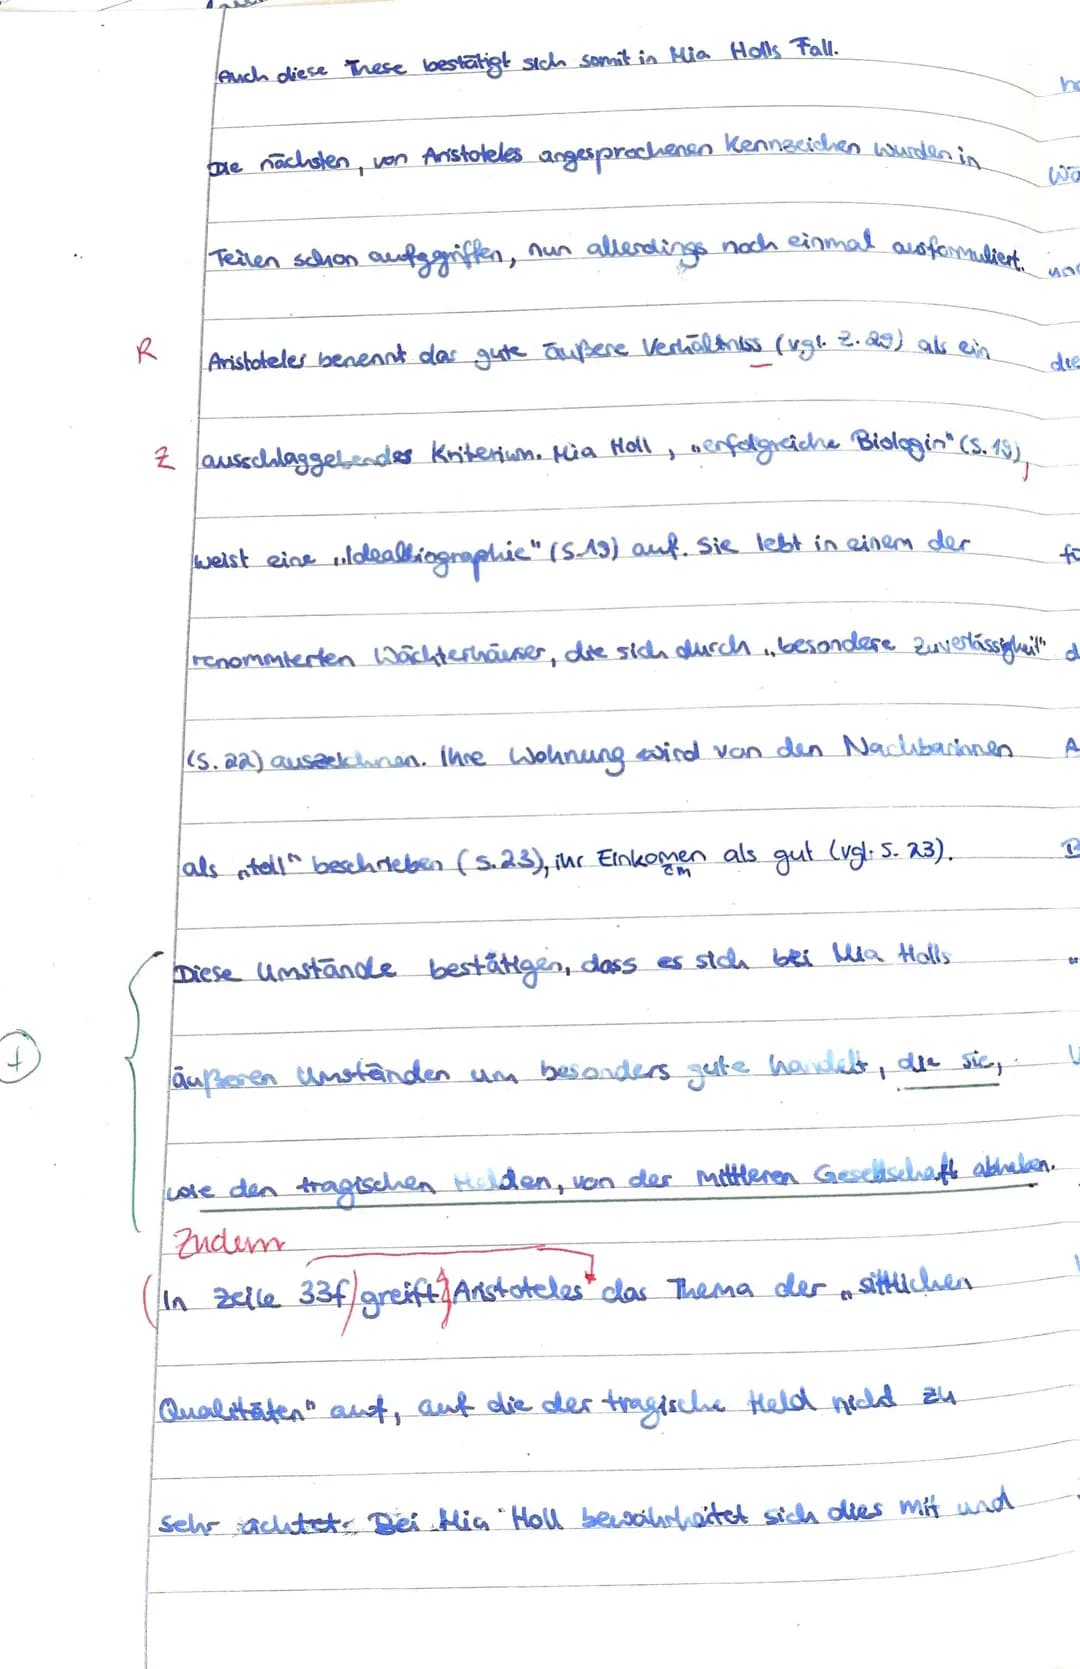 Auch diese These bestätigt sich somit in Mia Holls Fall.
Die nächsten, von Aristoteles angesprochenen Kennzeichen wurden in
Teilen schon aufggriffen, nun allerdings noch einmal ausformuliert.
R Aristoteles benennt das gute äußere Verhältniss (vgl. Z. 29) als ein
Z ausschlaggebendes Kriterium. Mia Holl, „erfolgreiche Biologin" (S. 19),
weist eine „Idealbiographie" (S.19) auf. Sie lebt in einem der
renommierten Wächterhäuser, die sich durch „besondere Zuverlässigkeit"
(S. 22) auszeichnen. Ihre Wohnung wird von den Nachbarinnen
als „toll" beschrieben (S.23), ihr Einkomen als gut (vgl. S. 23).
mm
Diese Umstände bestätigen, dass es sich bei Mia Holls
+ äußeren Umständen um besonders gute handelt, die sie,
wie den tragischen Helden, von der mittleren Gesellschaft abheben.
Zudem
(In Zeile 33f) greift Aristoteles das Thema der „sittlichen
Qualitäten" auf, auf die der tragische Held nicht zu
sehr achtet. Bei Mia Holl bewahrheitet sich dies mit und